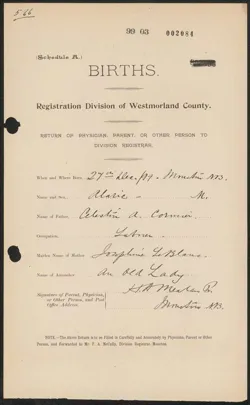 566
99 03 002086
(Schedule A.)
BIRTHS.
Registration Division of Westmorland County.
RETURN OF PHYSICIAN, PARENT, OR OTHER PERSON TO
DIVISION REGISTRAR.
When and Where Born, 27th Dec /89 - Moncton N.B.
Name and Sex, - M.
Name of Father, Celestin A. Cormier
Occupation, Labour
Maiden Name of Mother Josephine LeBlanc
Name of Attendant An Old Lady
Signature of Parent, Physician,
or Other Person, and Post
Office Address.
Moncton N.B.
NOTE.—The above Return to be Filled in Carefully and Accurately by Physician, Parent or Other
Person, and Forwarded to Division Registrar, Moncton.